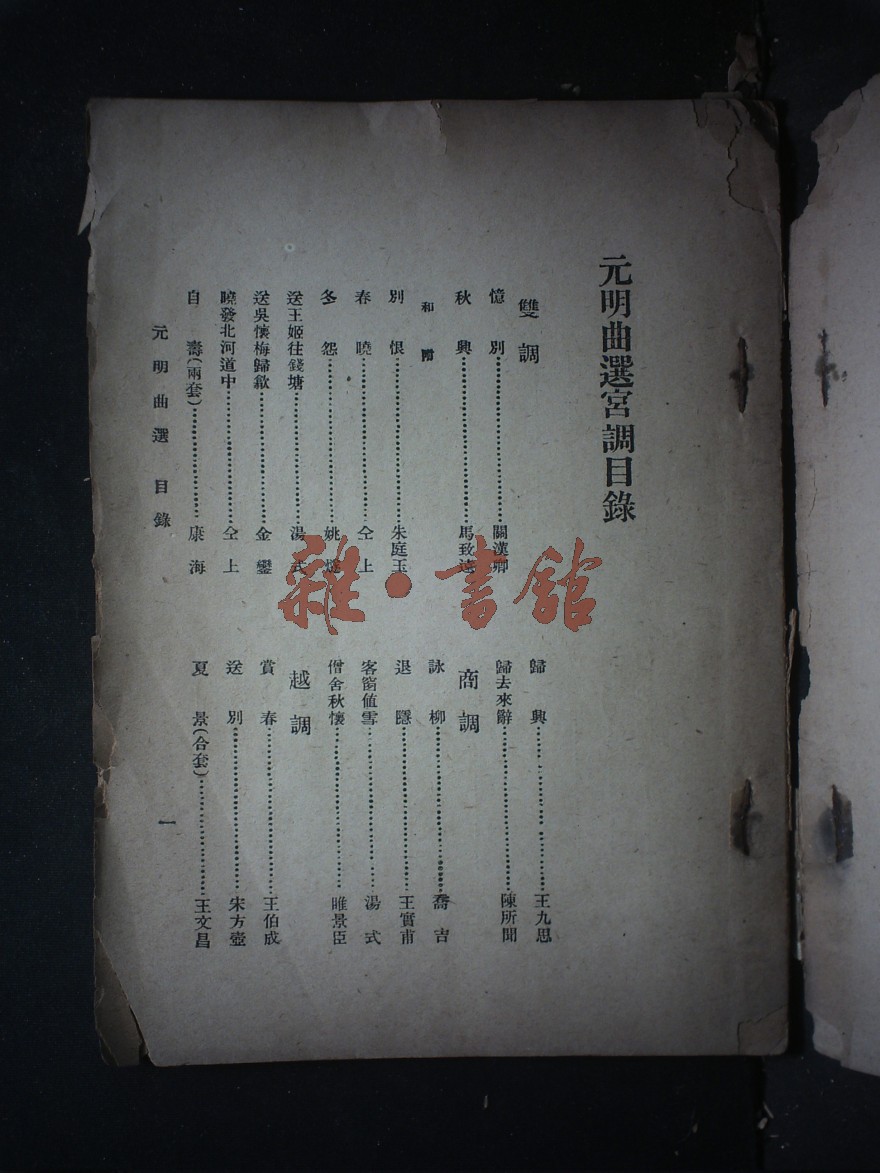 元明曲選宮調目錄
雙調
憶別⋯⋯關漢卿
秋興⋯⋯馬致遠
和附
別恨⋯⋯朱庭玉
春曉⋯⋯仝上
冬怨⋯⋯姚燧
送王姬往錢塘⋯⋯湯式
送吳懷梅歸歙⋯⋯金鑾
曉發北河道中⋯⋯仝上
自壽(兩套)⋯⋯康海
歸興⋯⋯王九思
歸去來辭⋯⋯陳所聞
商調
詠柳⋯⋯喬吉
退隱⋯⋯王實甫
客窗値雪⋯⋯湯式
僧舍秋懷⋯⋯睢景臣
越調
賞春⋯⋯王伯成
送別⋯⋯宋方壺
夏景(合套)⋯⋯王文昌
元明曲選 目錄
一
雜·書館